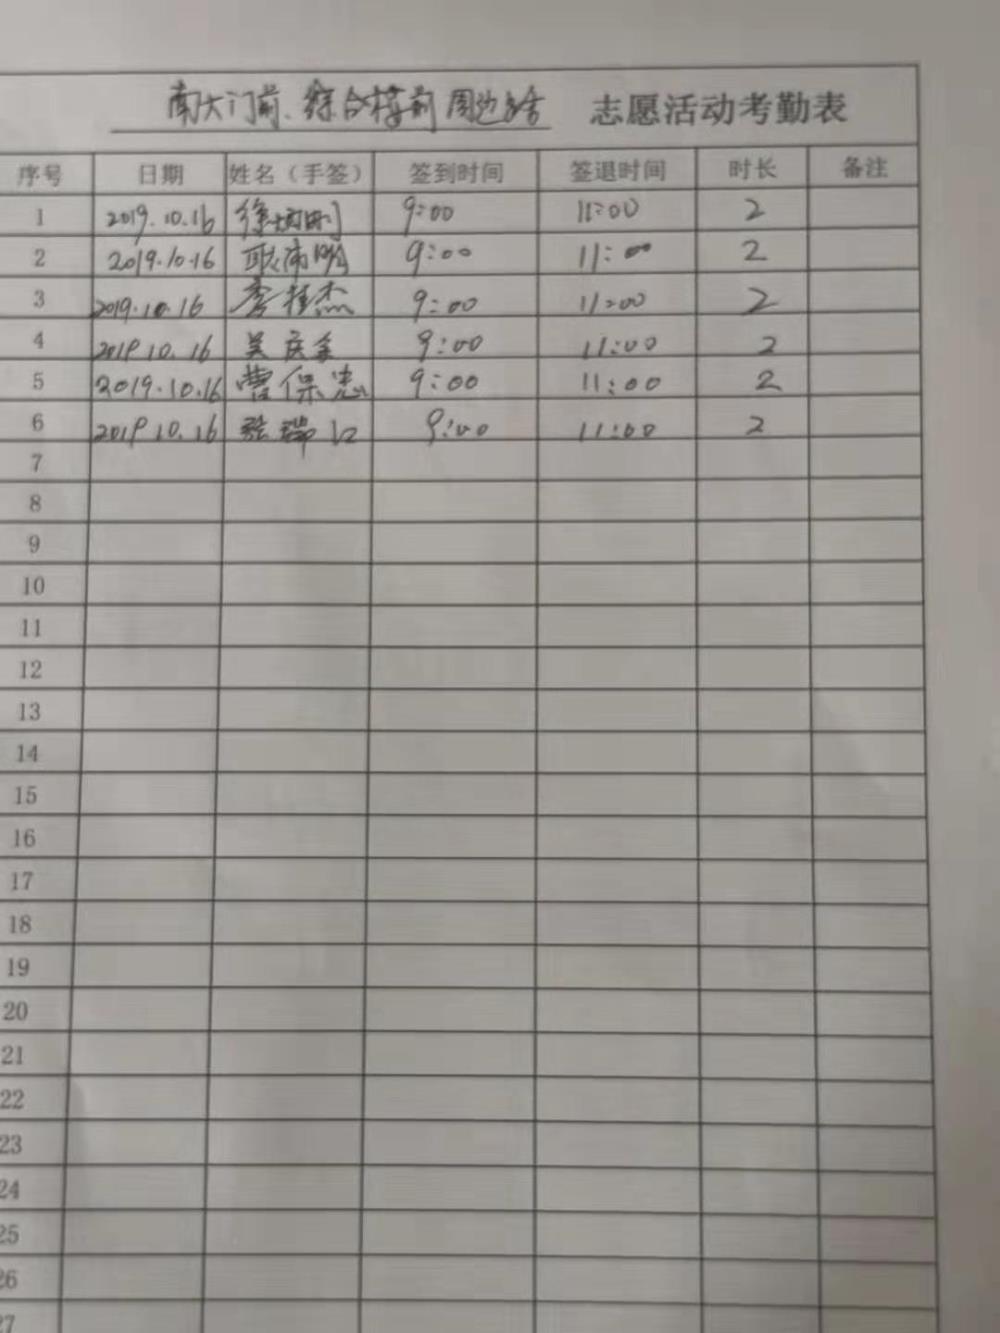 南大门前、综合楼前周边 志愿活动考勤表
序号 日期 姓名（手签） 签到时间 签退时间 时长 备注
1 2019.10.16 徐 9:00 11:00 2
2 2019.10.16 9:00 11:00 2
3 2019.10.16 李桂杰 9:00 11:00 2
4 2019 10.16 吴庆 9:00 11:00 2
5 2019.10.16 曹保忠 9:00 11:00 2
6 2019 10.16 张瑞江 9:00 11:00 2
7
8
9
10
11
12
13
14
15
16
17
18
19
20
21
22
23
24
25
26
27